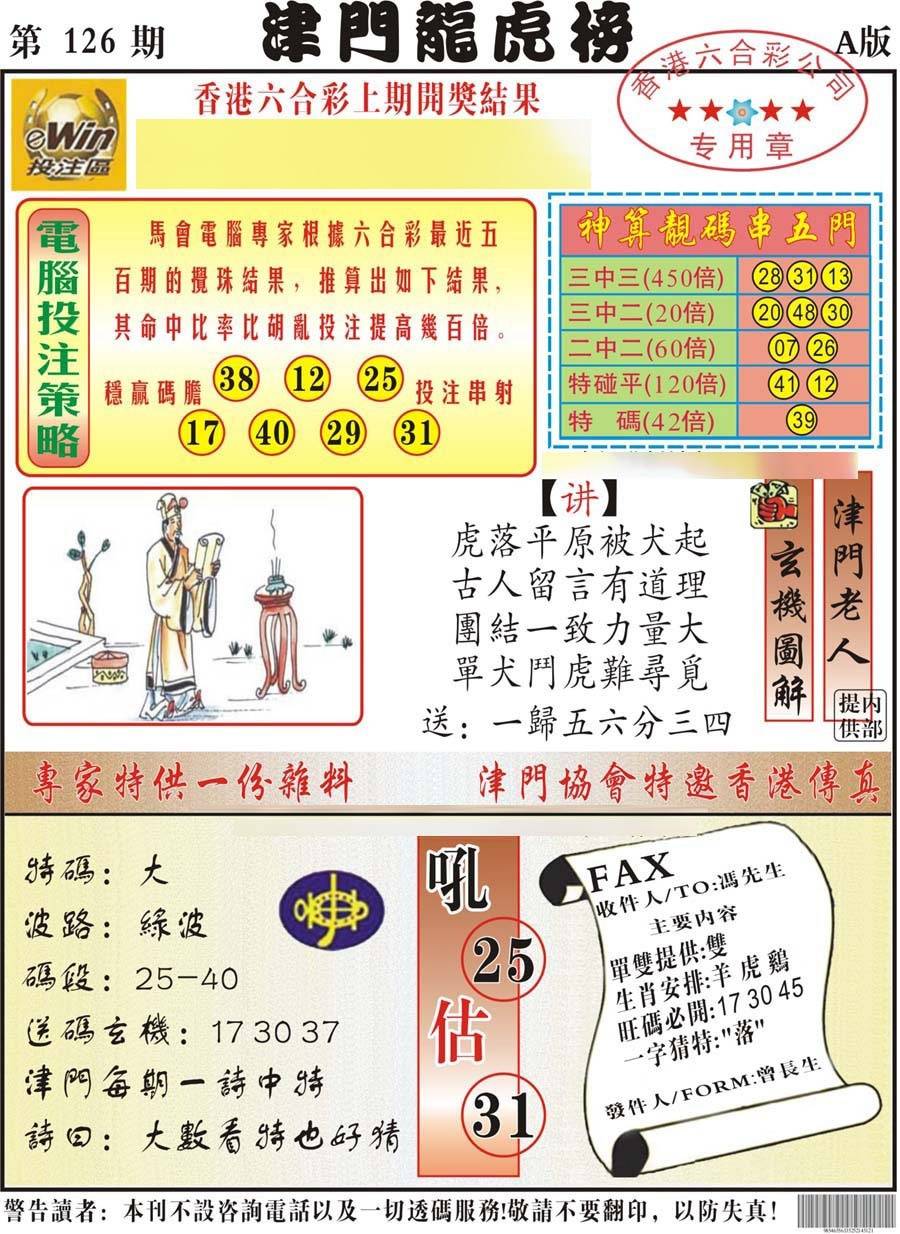 第 126 期
津門龍虎榜
A版
香港六合彩上期開獎結果
香港六合彩公司
专用章
eWin
投注區
電腦投注策略
馬會電腦專家根據六合彩最近五
百期的攪珠結果，推算出如下結果，
其命中比率比胡亂投注提高幾百倍。
穩贏碼膽 38 12 25 投注串射
17 40 29 31
神算靚碼串五門
三中三(450倍) 28 31 13
三中二(20倍) 20 48 30
二中二(60倍) 07 26
特碰平(120倍) 41 12
特 碼(42倍) 39
【讲】
虎落平原被犬起
古人留言有道理
團結一致力量大
單犬鬥虎難尋覓
送：一歸五六分三四
玄機圖解
津門老人
内部提供
專家特供一份雜料
津門協會特邀香港傳真
特碼：大
波路：綠波
碼段：25-40
送碼玄機：17 30 37
津門每期一詩中特
詩曰：大數看特也好猜
吼
25
估
31
FAX
收件人/TO:馮先生
主要内容
單雙提供:雙
生肖安排:羊 虎 鷄
旺碼必開:17 30 45
一字猜特:"落"
發件人/FORM:曾長生
警告讀者：本刊不設咨詢電話以及一切透碼服務!敬請不要翻印，以防失真!